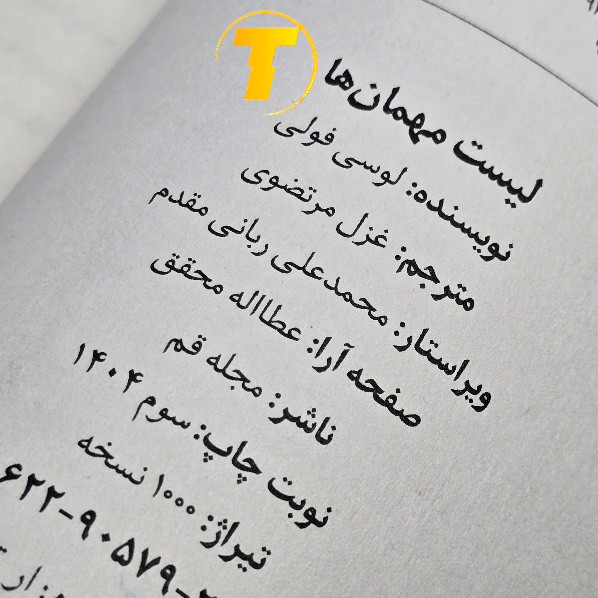 T
لیست مهمان‌ها
نویسنده: لوسی فولی
مترجم: غزل مرتضوی
ویراستار: محمدعلی ربانی مقدم
صفحه آرا: عطااله محقق
ناشر: مجله قم
نوبت چاپ: سوم ۱۴۰۴
تیراژ: ۱۰۰۰ نسخه
۶۲۲-۹۰۵۷۹-